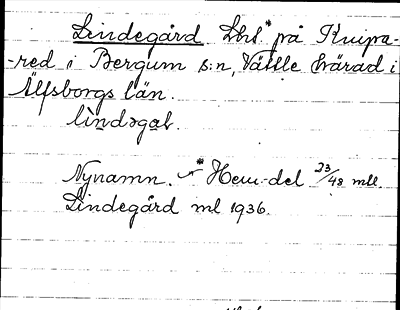 Lindegård Lht* på Knipa-
-red i Bergum s:n, Vättle härad i
Älfsborgs län.
Nynamn. * Hem.-del 23/48 mtl.
Lindegård ml 1936.